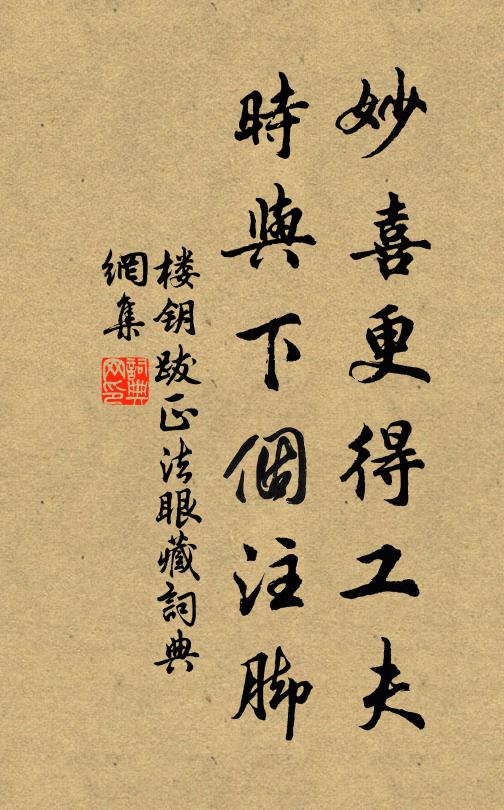 妙喜更得工夫
時與下個注脚
楼钥跋正法眼藏詞典
網集
詞典网印